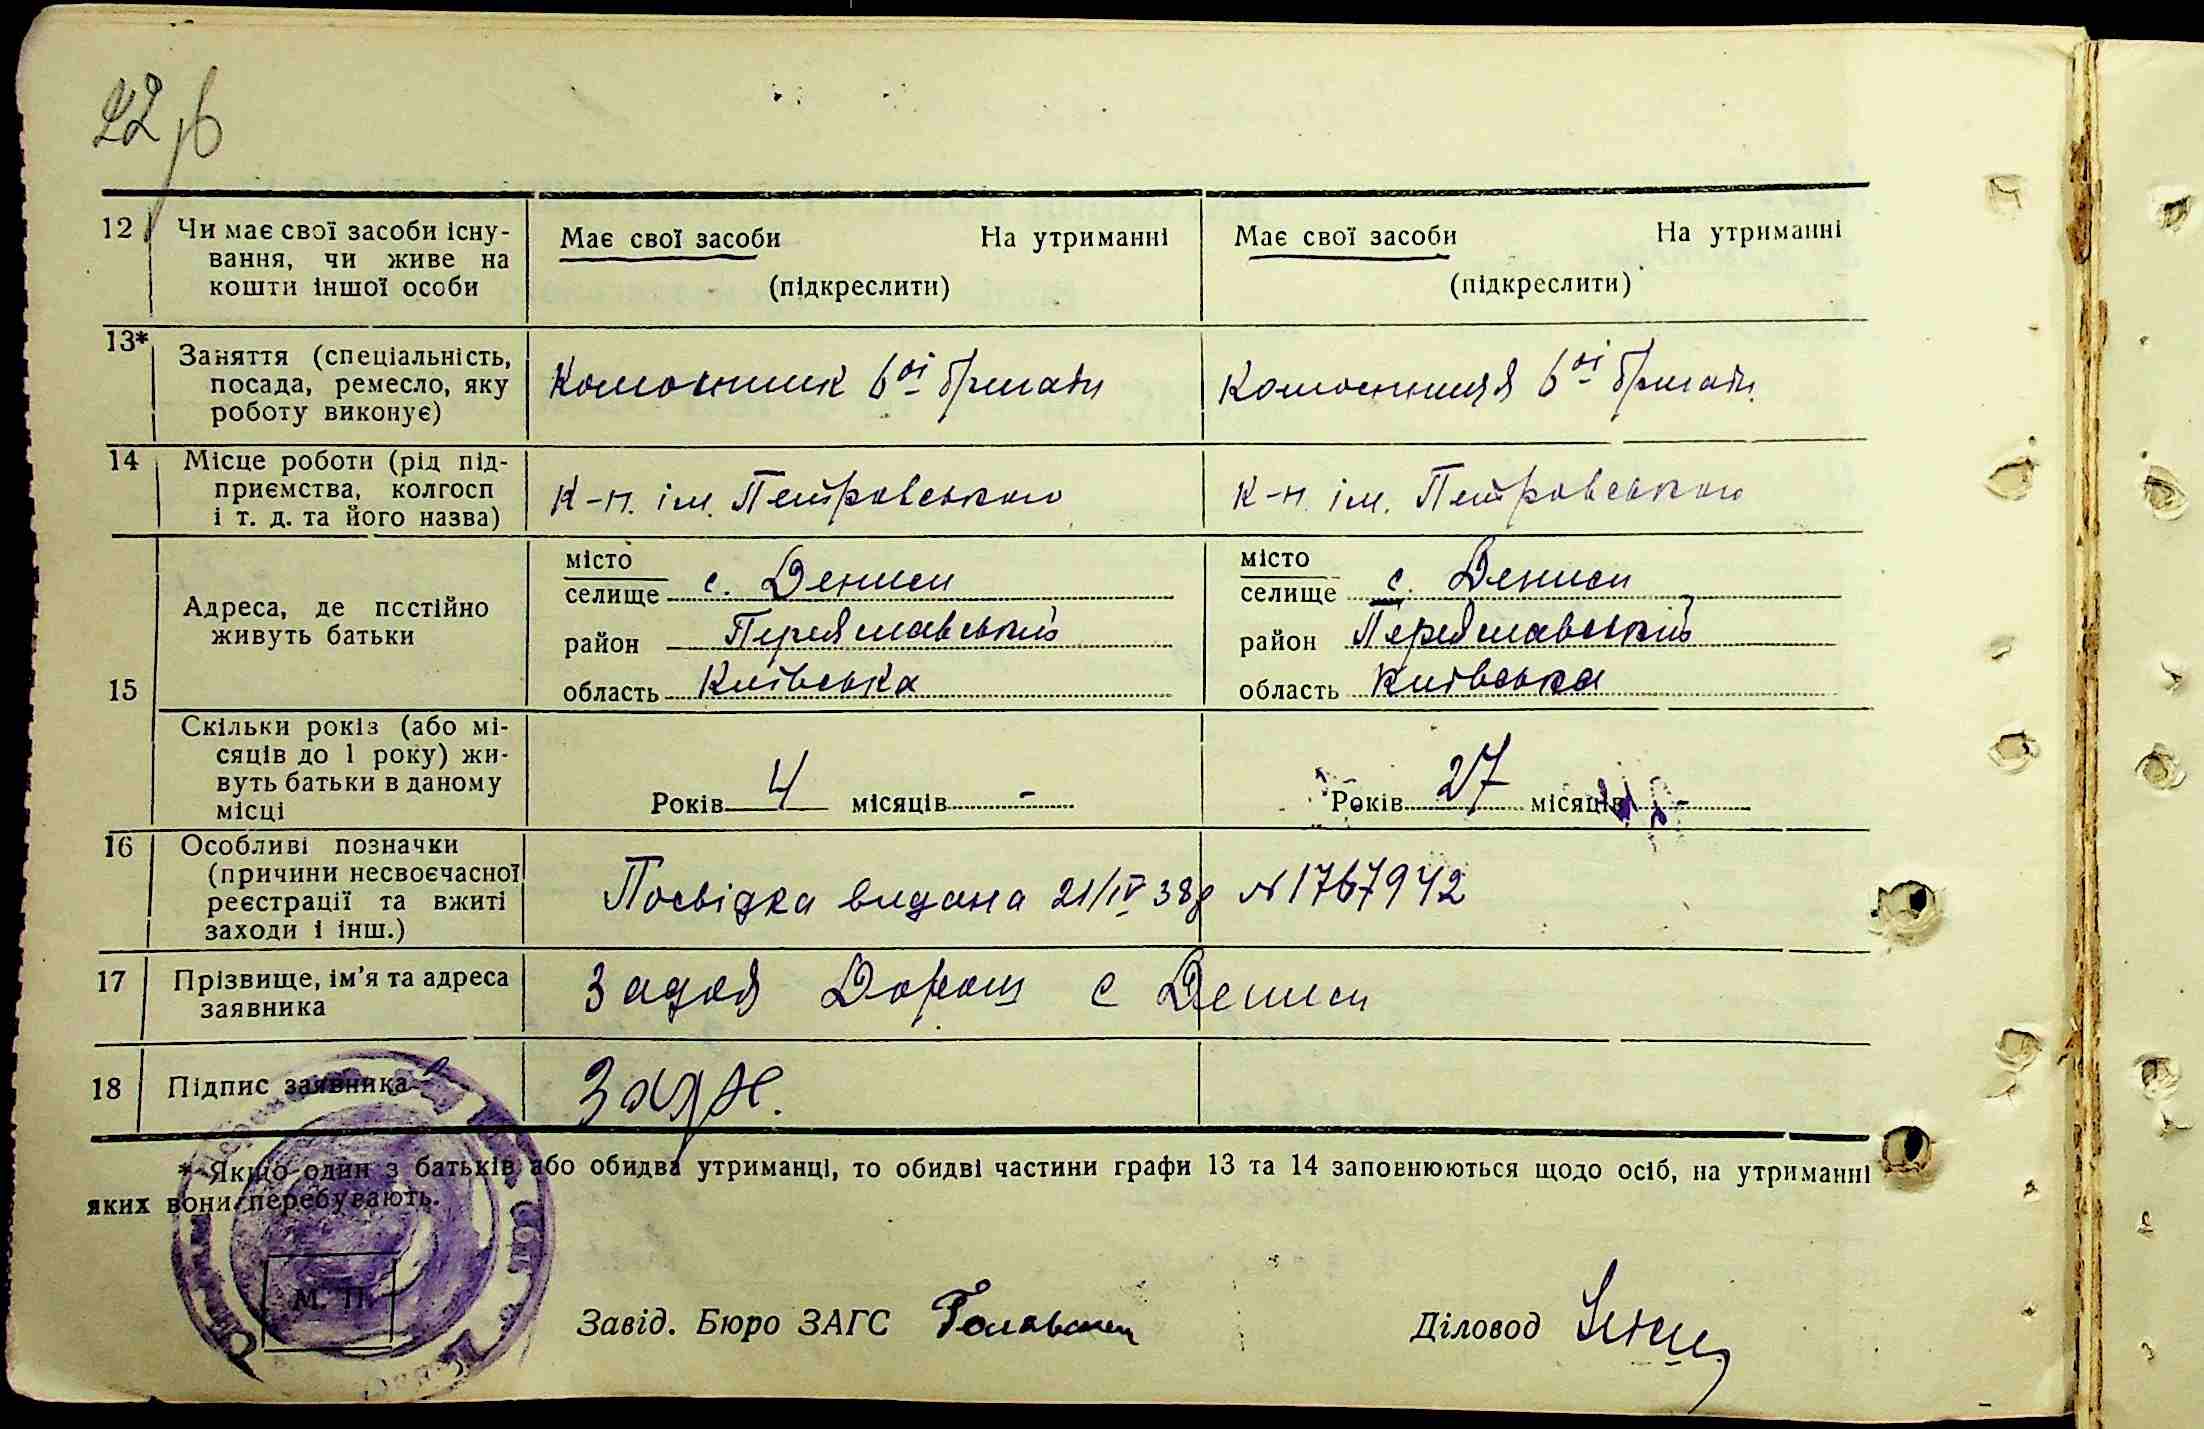 22 зв
12 Чи має свої засоби існу- Має свої засоби На утриманні Має свої засоби На утриманні
вання, чи живе на
кошти іншої особи (підкреслити) (підкреслити)
13* Заняття (спеціальність,
посада, ремесло, яку 6ої бригади 6ої бригади
роботу виконує)
14 Місце роботи (рід під-
приємства, колгосп К-п. ім. Петровського К-п. ім. Петровського
і т. д. та його назва)
місто місто
селище с. Дениси селище с. Дениси
Адреса, де постійно
живуть батьки район Переяславський район Переяславський
15 область Київська область Київська
Скільки років (або мі-
сяців до 1 року) жи-
вуть батьки в даному
місці Років 4 місяців - Років 27 місяців -
16 Особливі позначки
(причини несвоєчасної
реєстрації та вжиті Посвідка видана 21/IV 38р N 1767942
заходи і інш.)
17 Прізвище, ім'я та адреса Задоя Дорош с Дениси
заявника
18 Підпис заявника
* Якщо один з батьків або обидва утриманці, то обидві частини графи 13 та 14 заповнюються щодо осіб, на утриманні
яких вони перебувають.
М. П.
Завід. Бюро ЗАГС Діловод